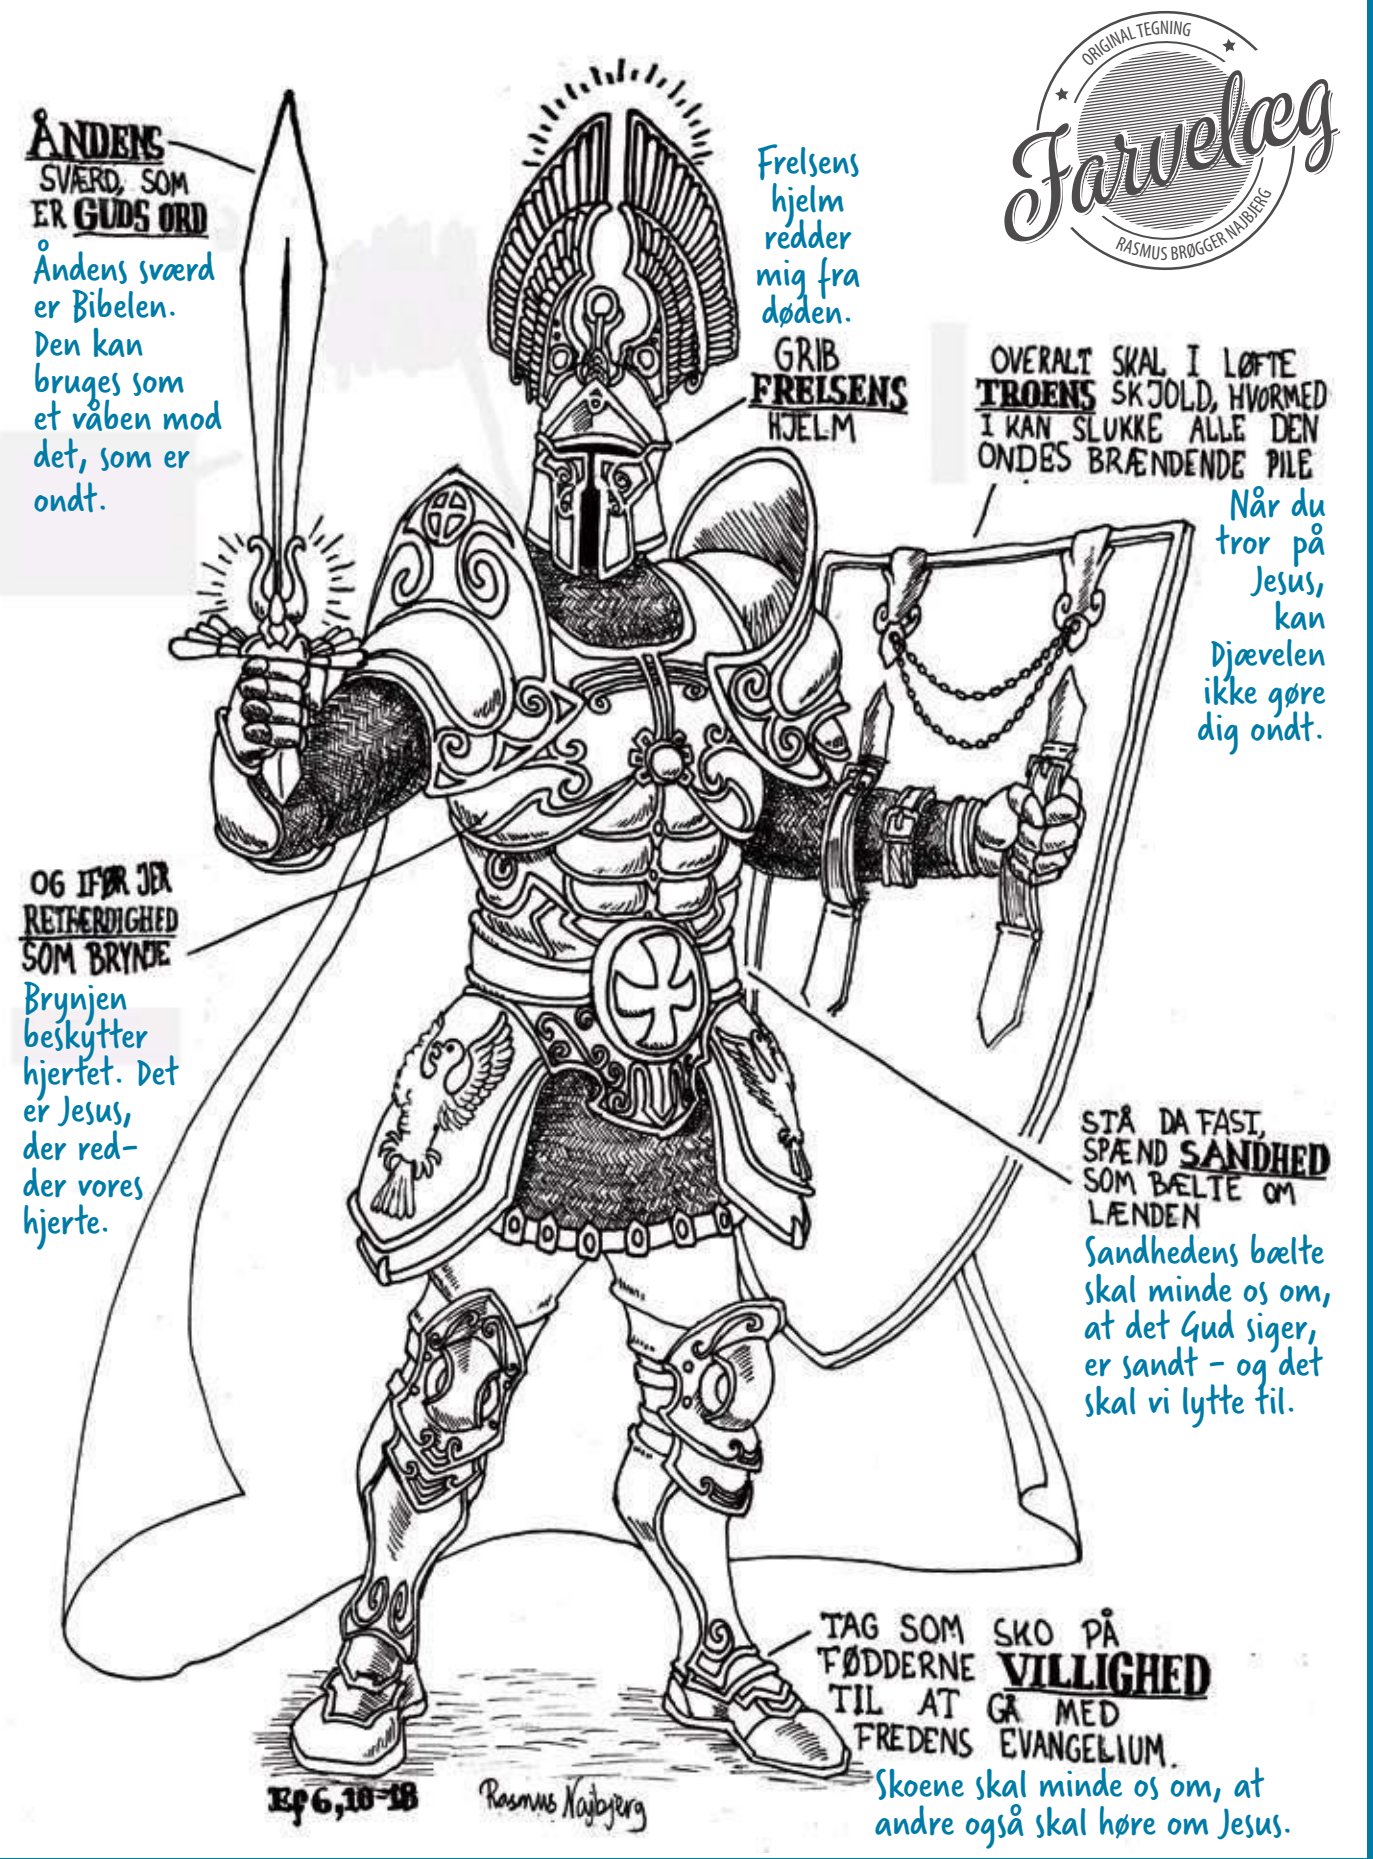 ORIGINAL TEGNING
Farvelæg
RASMUS BRØGGER NAJBJERG
ÅNDENS
SVÆRD, SOM
ER GUDS ORD
Åndens sværd
er Bibelen.
Den kan
bruges som
et våben mod
det, som er
ondt.
Frelsens
hjelm
redder
mig fra
døden.
GRIB
FRELSENS
HJELM
OVERALT SKAL I LØFTE
TROENS SKJOLD, HVORMED
I KAN SLUKKE ALLE DEN
ONDES BRÆNDENDE PILE
Når du
tror på
Jesus,
kan
Djævelen
ikke gøre
dig ondt.
OG IFØR JER
RETFÆRDIGHED
SOM BRYNJE
Brynjen
beskytter
hjertet. Det
er Jesus,
der red-
der vores
hjerte.
STÅ DA FAST,
SPÆND SANDHED
SOM BÆLTE OM
LÆNDEN
Sandhedens bælte
skal minde os om,
at det Gud siger,
er sandt – og det
skal vi lytte til.
TAG SOM SKO PÅ
FØDDERNE VILLIGHED
TIL AT GÅ MED
FREDENS EVANGELIUM.
Skoene skal minde os om, at
andre også skal høre om Jesus.
Ef 6,10-18
Rasmus Najbjerg